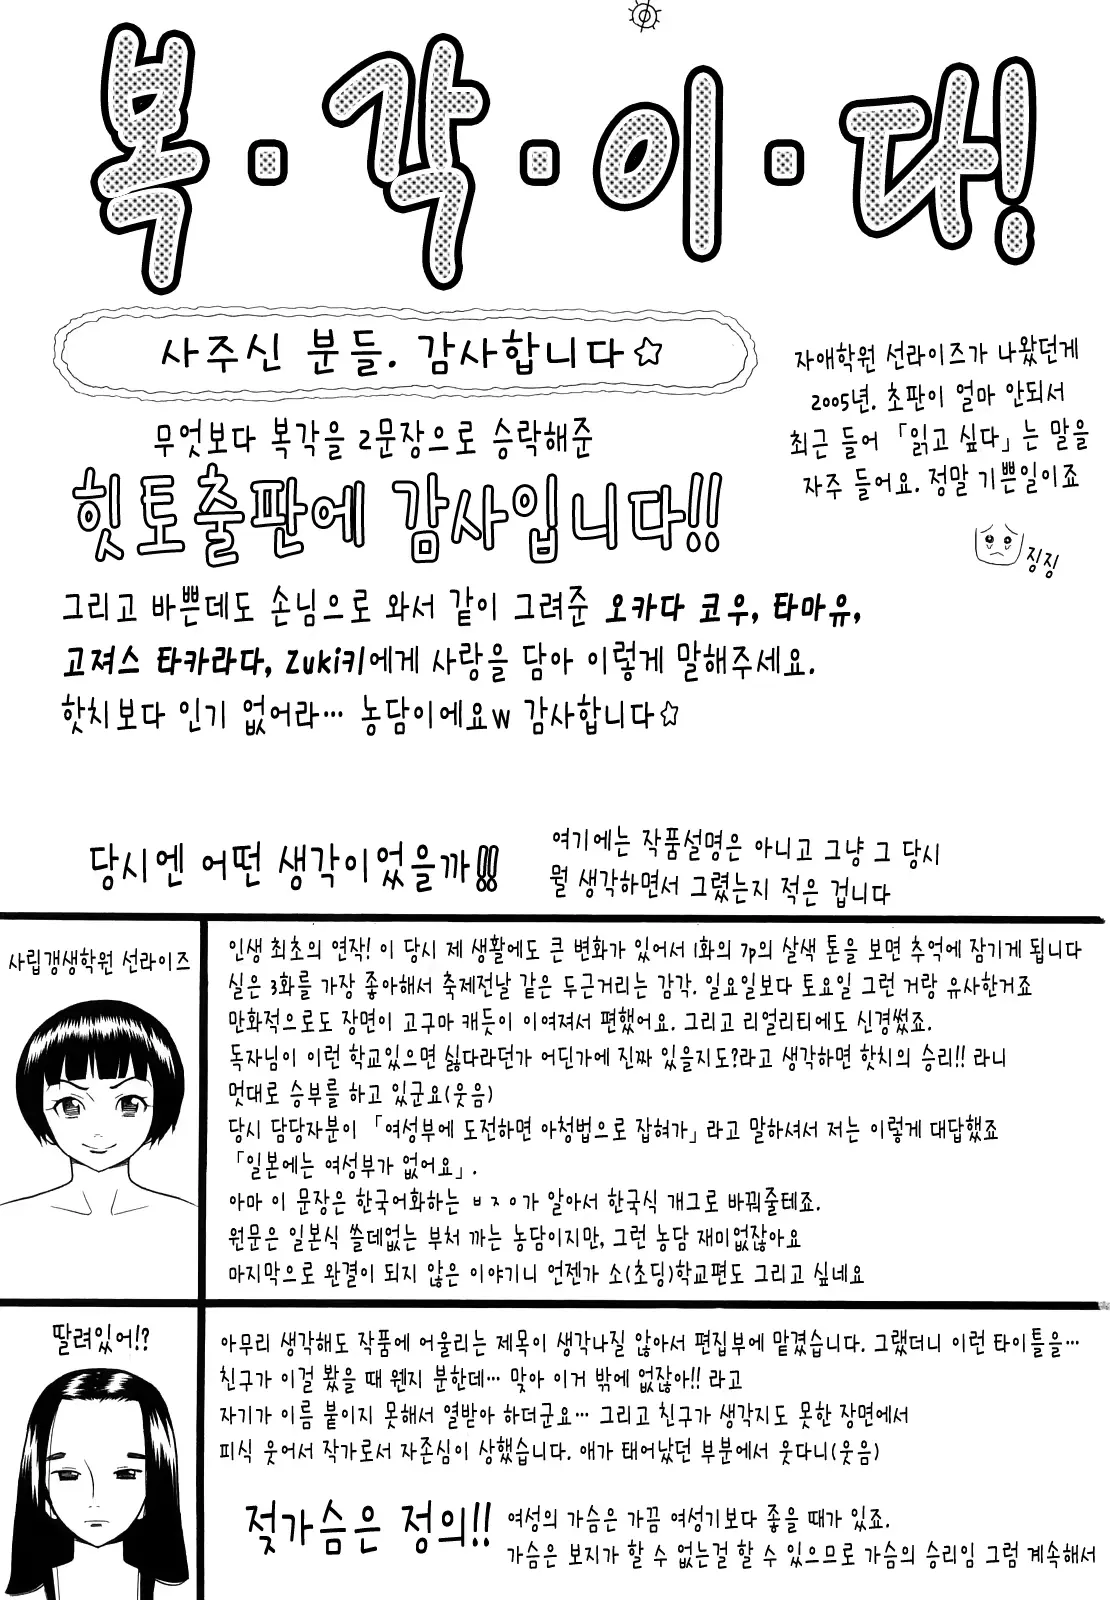 복·각·이·다!
사주신 분들. 감사합니다☆
자애학원 선라이즈가 나왔던게
2005년. 초판이 얼마 안되서
최근 들어 「읽고 싶다」는 말을
자주 들어요. 정말 기쁜일이죠
징징
무엇보다 복각을 2문장으로 승락해준
힛토출판에 감사입니다!!
그리고 바쁜데도 손님으로 와서 같이 그려준 오카다 코우, 타마유,
고져스 타카라다, Zuki키에게 사랑을 담아 이렇게 말해주세요.
핫치보다 인기 없어라… 농담이에요w 감사합니다☆
당시엔 어떤 생각이었을까!!!
여기에는 작품설명은 아니고 그냥 그 당시
뭘 생각하면서 그렸는지 적은 겁니다
사립갱생학원 선라이즈
인생 최초의 연작! 이 당시 제 생활에도 큰 변화가 있어서 1화의 7p의 살색 톤을 보면 추억에 잠기게 됩니다
실은 3화를 가장 좋아해서 축제전날 같은 두근거리는 감각. 일요일보다 토요일 그런 거랑 유사한거죠
만화적으로도 장면이 고구마 캐듯이 이여져서 편했어요. 그리고 리얼리티에도 신경썼죠.
독자님이 이런 학교있으면 싫다라던가 어딘가에 진짜 있을지도?라고 생각하면 핫치의 승리!! 라니
멋대로 승부를 하고 있군요(웃음)
당시 담당자분이 「여성부에 도전하면 아청법으로 잡혀가」라고 말하셔서 저는 이렇게 대답했죠
「일본에는 여성부가 없어요」.
아마 이 문장은 한국어화하는 ㅂㅈㅇ가 알아서 한국식 개그로 바꿔줄테죠.
원문은 일본식 쓸데없는 부처 까는 농담이지만, 그런 농담 재미없잖아요
마지막으로 완결이 되지 않은 이야기니 언젠가 소(초딩)학교편도 그리고 싶네요
딸려있어!?
아무리 생각해도 작품에 어울리는 제목이 생각나질 않아서 편집부에 맡겼습니다. 그랬더니 이런 타이틀을…
친구가 이걸 봤을 때 웬지 분한데… 맞아 이거 밖에 없잖아!! 라고
자기가 이름 붙이지 못해서 열받아 하더군요… 그리고 친구가 생각지도 못한 장면에서
피식 웃어서 작가로서 자존심이 상했습니다. 애가 태어났던 부분에서 웃다니(웃음)
젖가슴은 정의!!
여성의 가슴은 가끔 여성기보다 좋을 때가 있죠.
가슴은 보지가 할 수 없는걸 할 수 있으므로 가슴의 승리임 그럼 계속해서